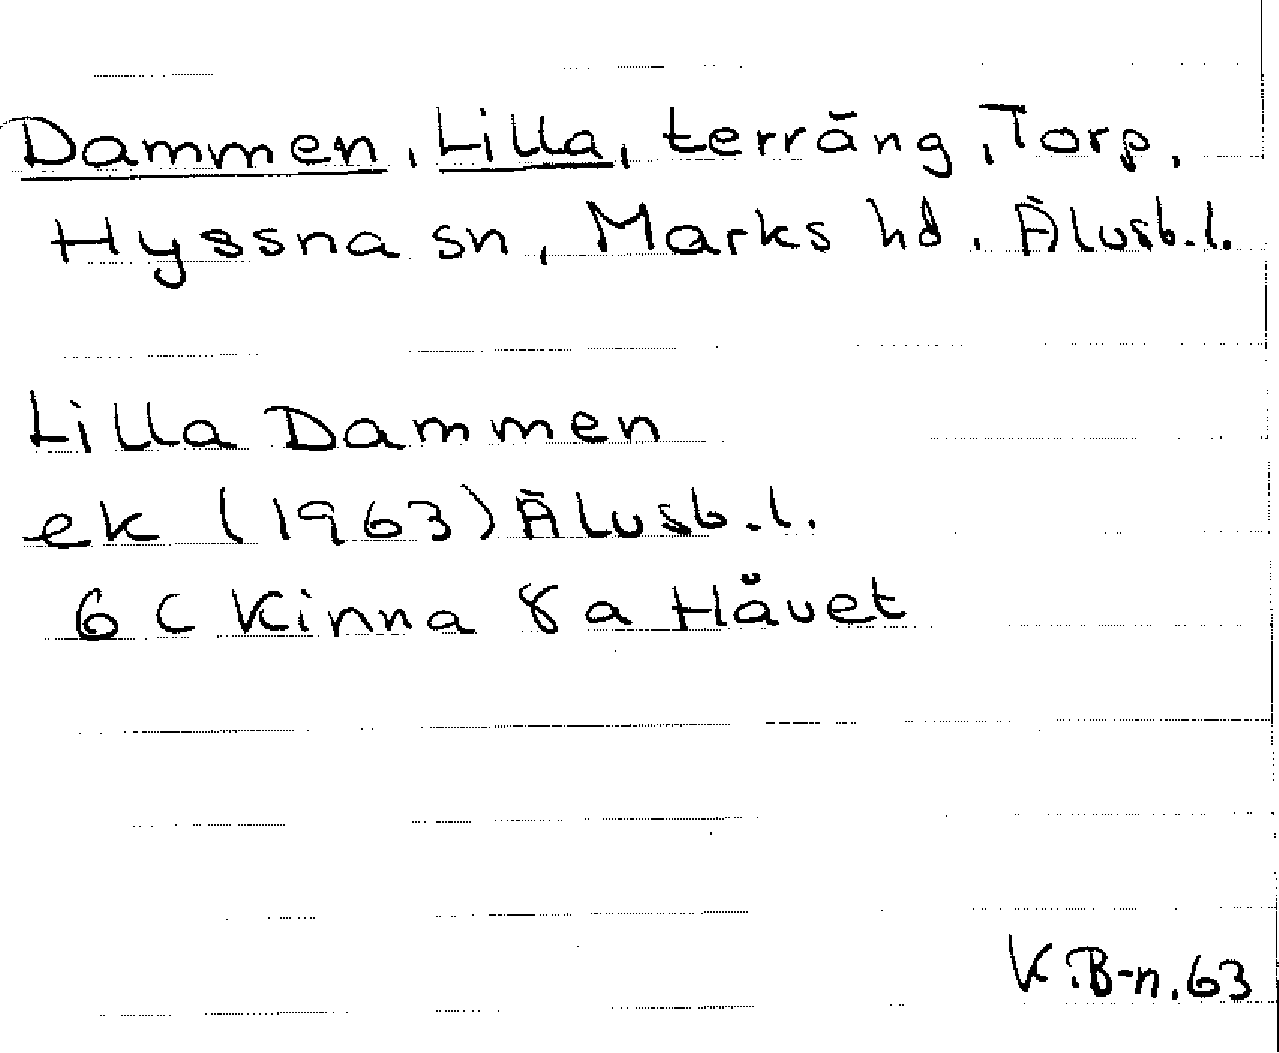 Dammen, Lilla, terräng, Torp,
Hyssna sn, Marks hd. Älvsb.l.
Lilla Dammen
ek (1963) Älvsb.l.
6 C Kinna 8 a Håvet
K.B-n.63